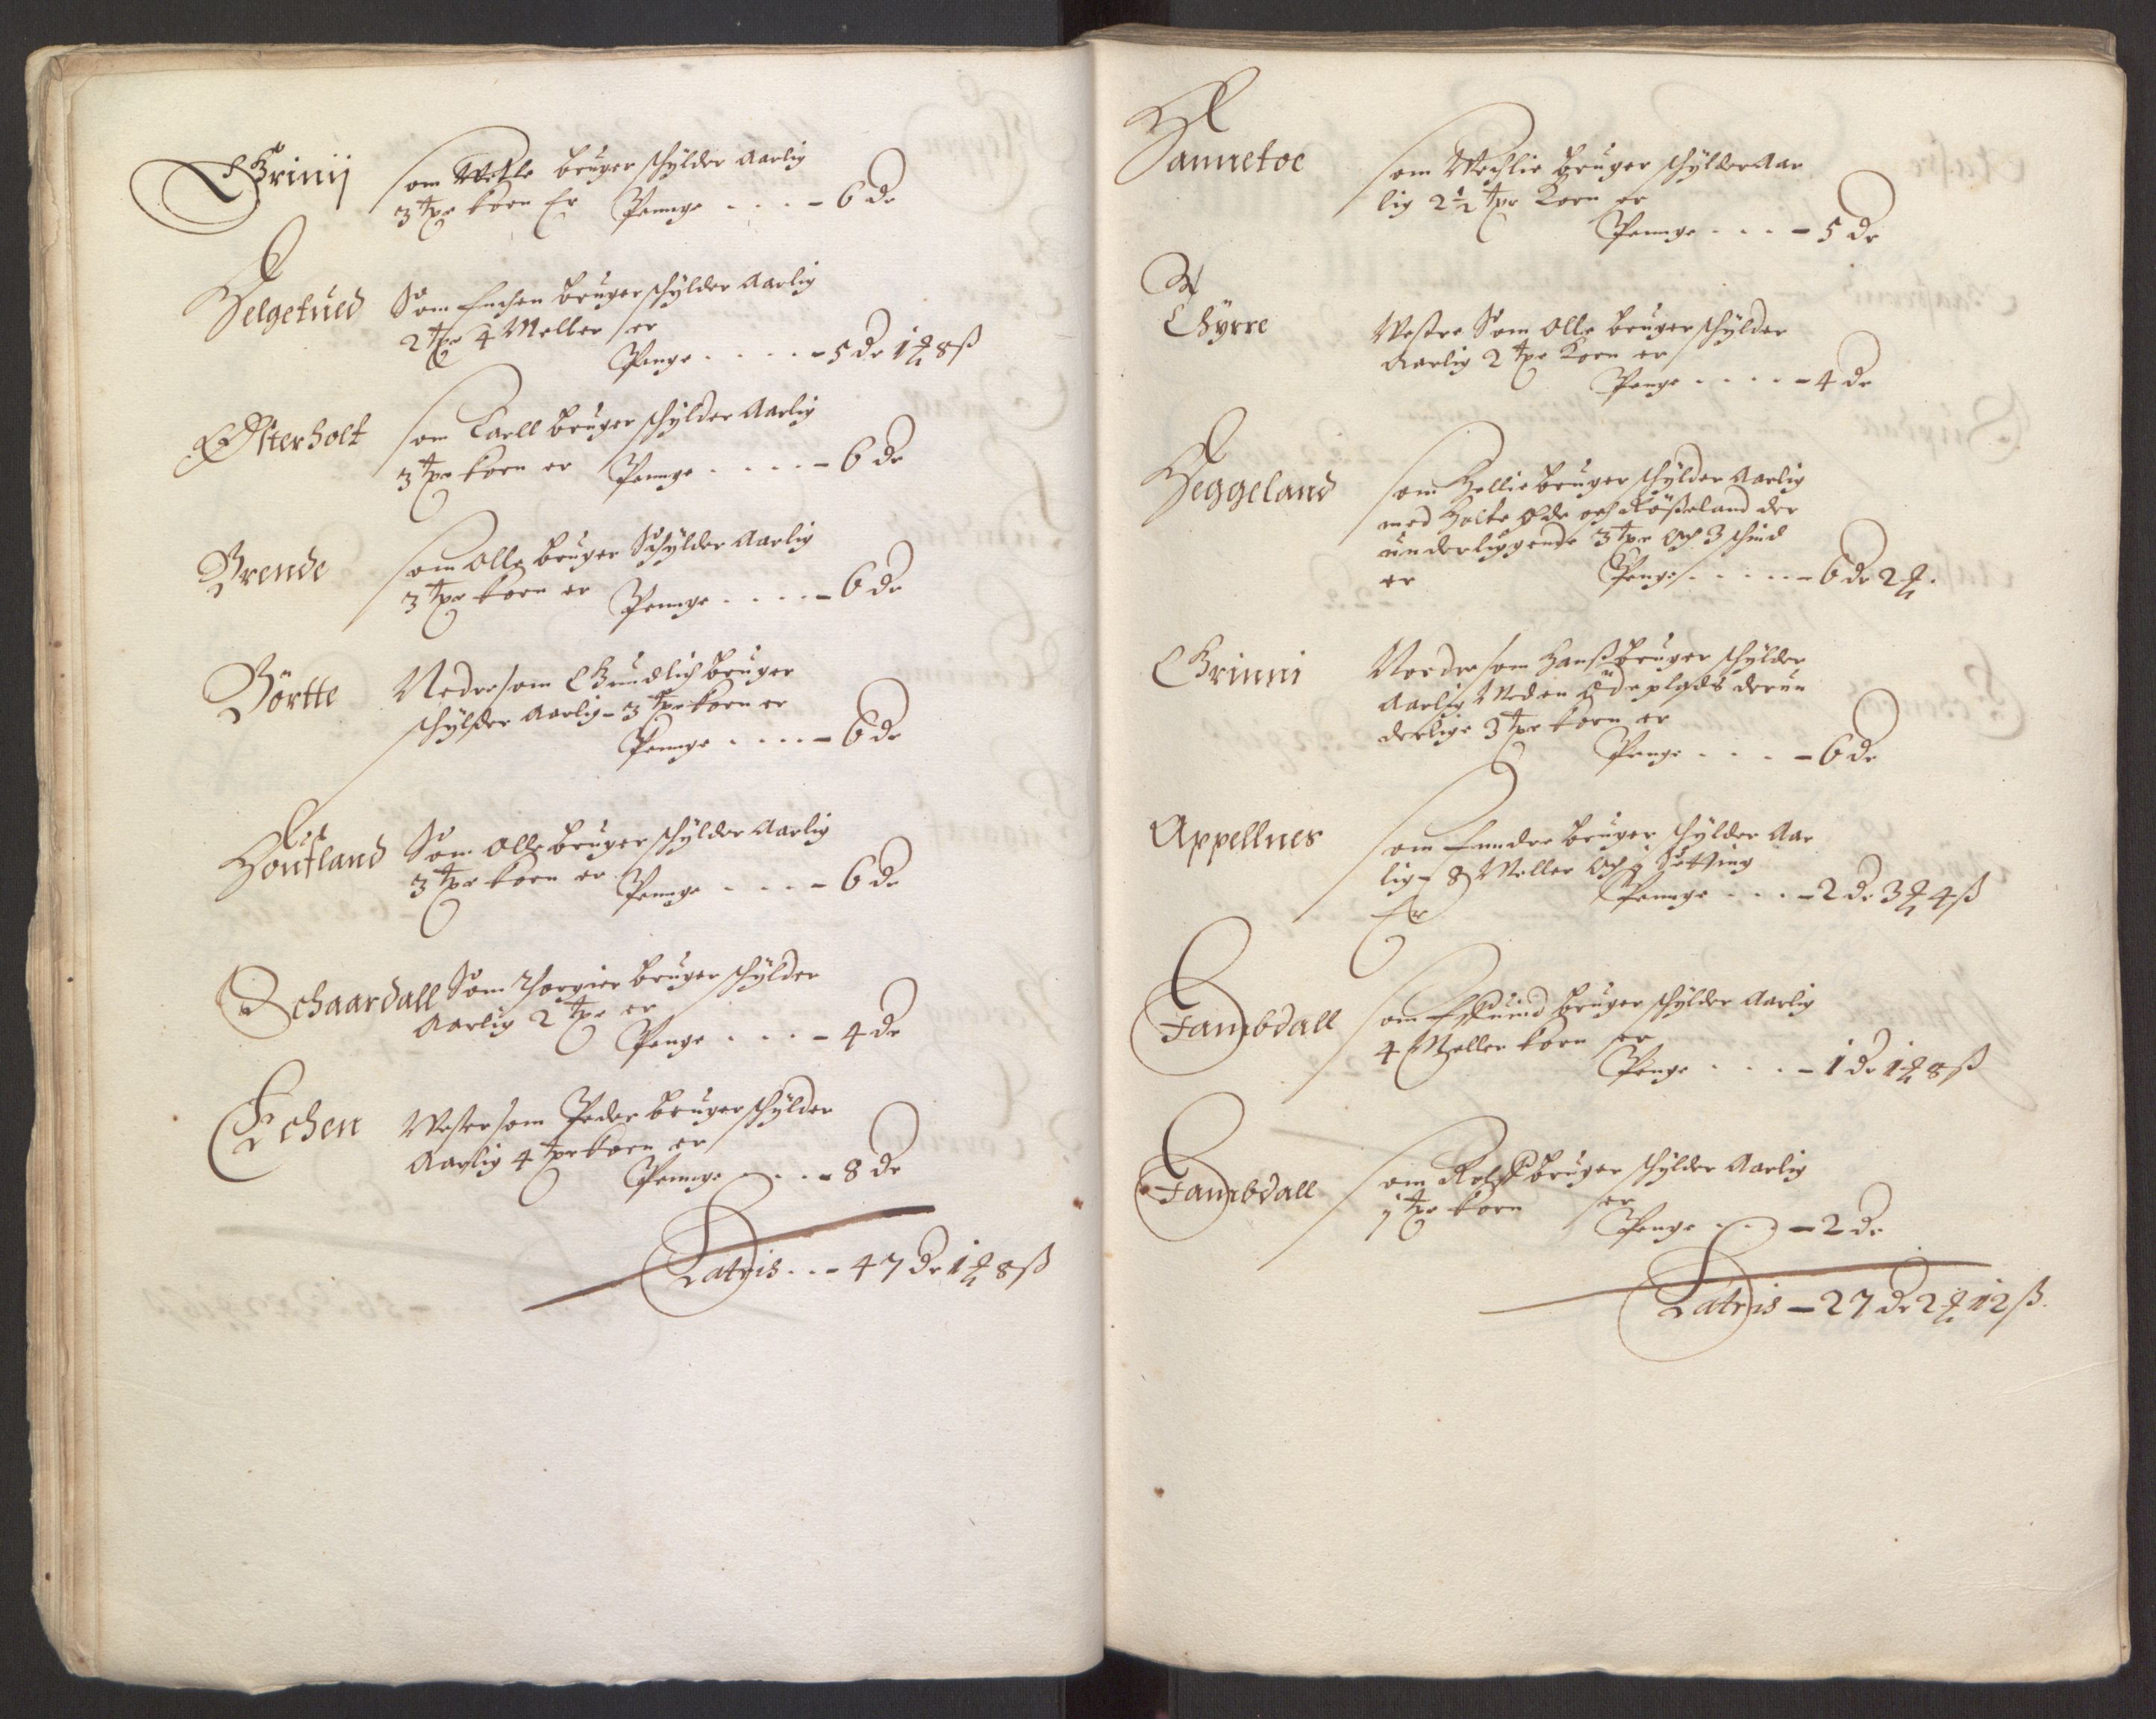 Grinij som Vetle bruger schylder Aarlig
3 tpr korn Er Pennge - - - - 6 dr
Helgetued Som Enchen bruger schylder Aarlig
2 tpr 4 Meller er
Penge - - - - - 5 dr 1 ℔ 8 ß
Østerholt som Karll bruger schylder Aarlig
3 tpr korn er Pennge - - - - - 6 dr
Brende som Olle bruger Schylder Aarlig
3 tpr korn er Pennge - - - - - 6 dr
Börtte Nedre som Gundlich bruger
schylder Aarlig - 3 tpr korn er
Pennge - - - - - 6 dr
Houfland Som Olle bruger schylder Aarlig
3 tpr korn er Pennge - - - - 6 dr
Schaardall Som Thorgier bruger schylder
Aarlig 2 tpr er
Penge - - - - 4 dr
Echen Vester som Peder bruger schylder
Aarlig 4 tpr korn er
Pennge - - - - 8 dr
Latris - - - 47 dr 1 ℔ 8 ß
som bruger schylder Aar
lig 2 1/2 tpr Korn er
Pennge - - - - 5 dr
Gyrre Vestre Som Olle bruger schylder
Aarlig 2 tpr Korn er
Penge - - - - - 4 dr
Heggeland som Hellie bruger schylder Aarlig
med Holte Øde och Kößeland der
underliggende 3 tpr Och 3 schind
er Penge - - - - - 6 dr 2 ℔.
Grinni Nordre som Hanß bruger schylder
Aarlig Med en Øde plads derun
derlige 3 tpr korn er
Penge - - - - 6 dr
Appellnes som bruger schylder Aar
lig - 8 Meller Och 1 Setting
Er Pennge - - - - 2 dr 3 ℔ 4 ß
Fambdall som bruger schylder Aarlig
4 Meller korn er
Penge - - - - 1 dr 1 ℔ 8 ß
Fambdall som Rolf bruger schylder Aarlig
1 tpr korn er
Penge - - - - 2 dr
Latris - 27 dr 2 ℔ 12 ß.